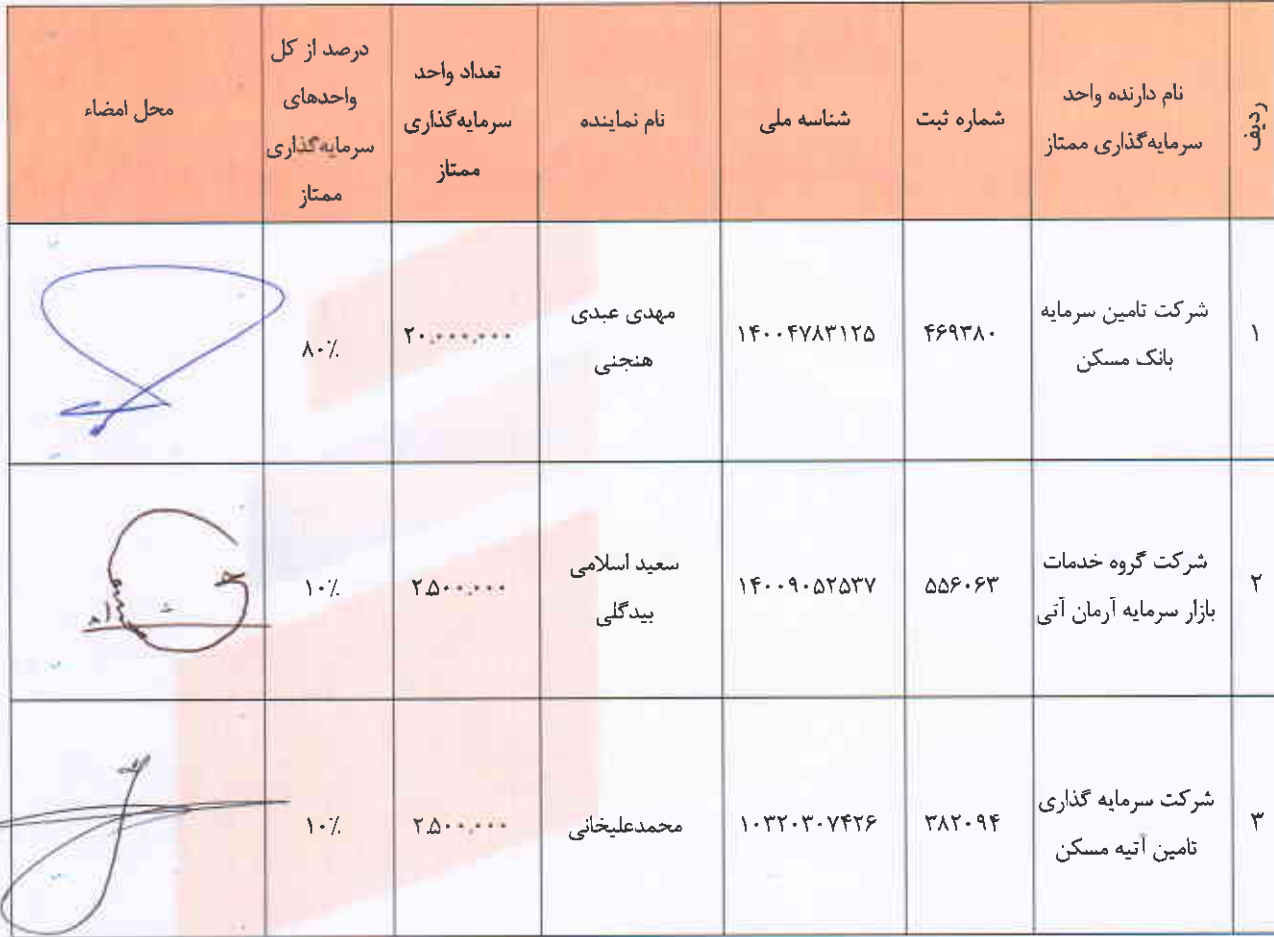 ردیف
نام دارنده واحد
سرمایه‌گذاری ممتاز
شماره ثبت
شناسه ملی
نام نماینده
تعداد واحد
سرمایه‌گذاری
ممتاز
درصد از کل
واحدهای
سرمایه‌گذاری
ممتاز
محل امضاء
۱
شرکت تامین سرمایه
بانک مسکن
۴۶۹۳۸۰
۱۴۰۰۴۷۸۳۱۲۵
مهدی عبدی
هنجنی
۲۰,۰۰۰,۰۰۰
۸۰٪
۲
شرکت گروه خدمات
بازار سرمایه آرمان آتی
۵۵۶۰۶۳
۱۴۰۰۹۰۵۲۵۳۷
سعید اسلامی
بیدگلی
۲,۵۰۰,۰۰۰
۱۰٪
۳
شرکت سرمایه گذاری
تامین آتیه مسکن
۳۸۲۰۹۴
۱۰۳۲۰۳۰۷۴۲۶
محمدعلیخانی
۲,۵۰۰,۰۰۰
۱۰٪